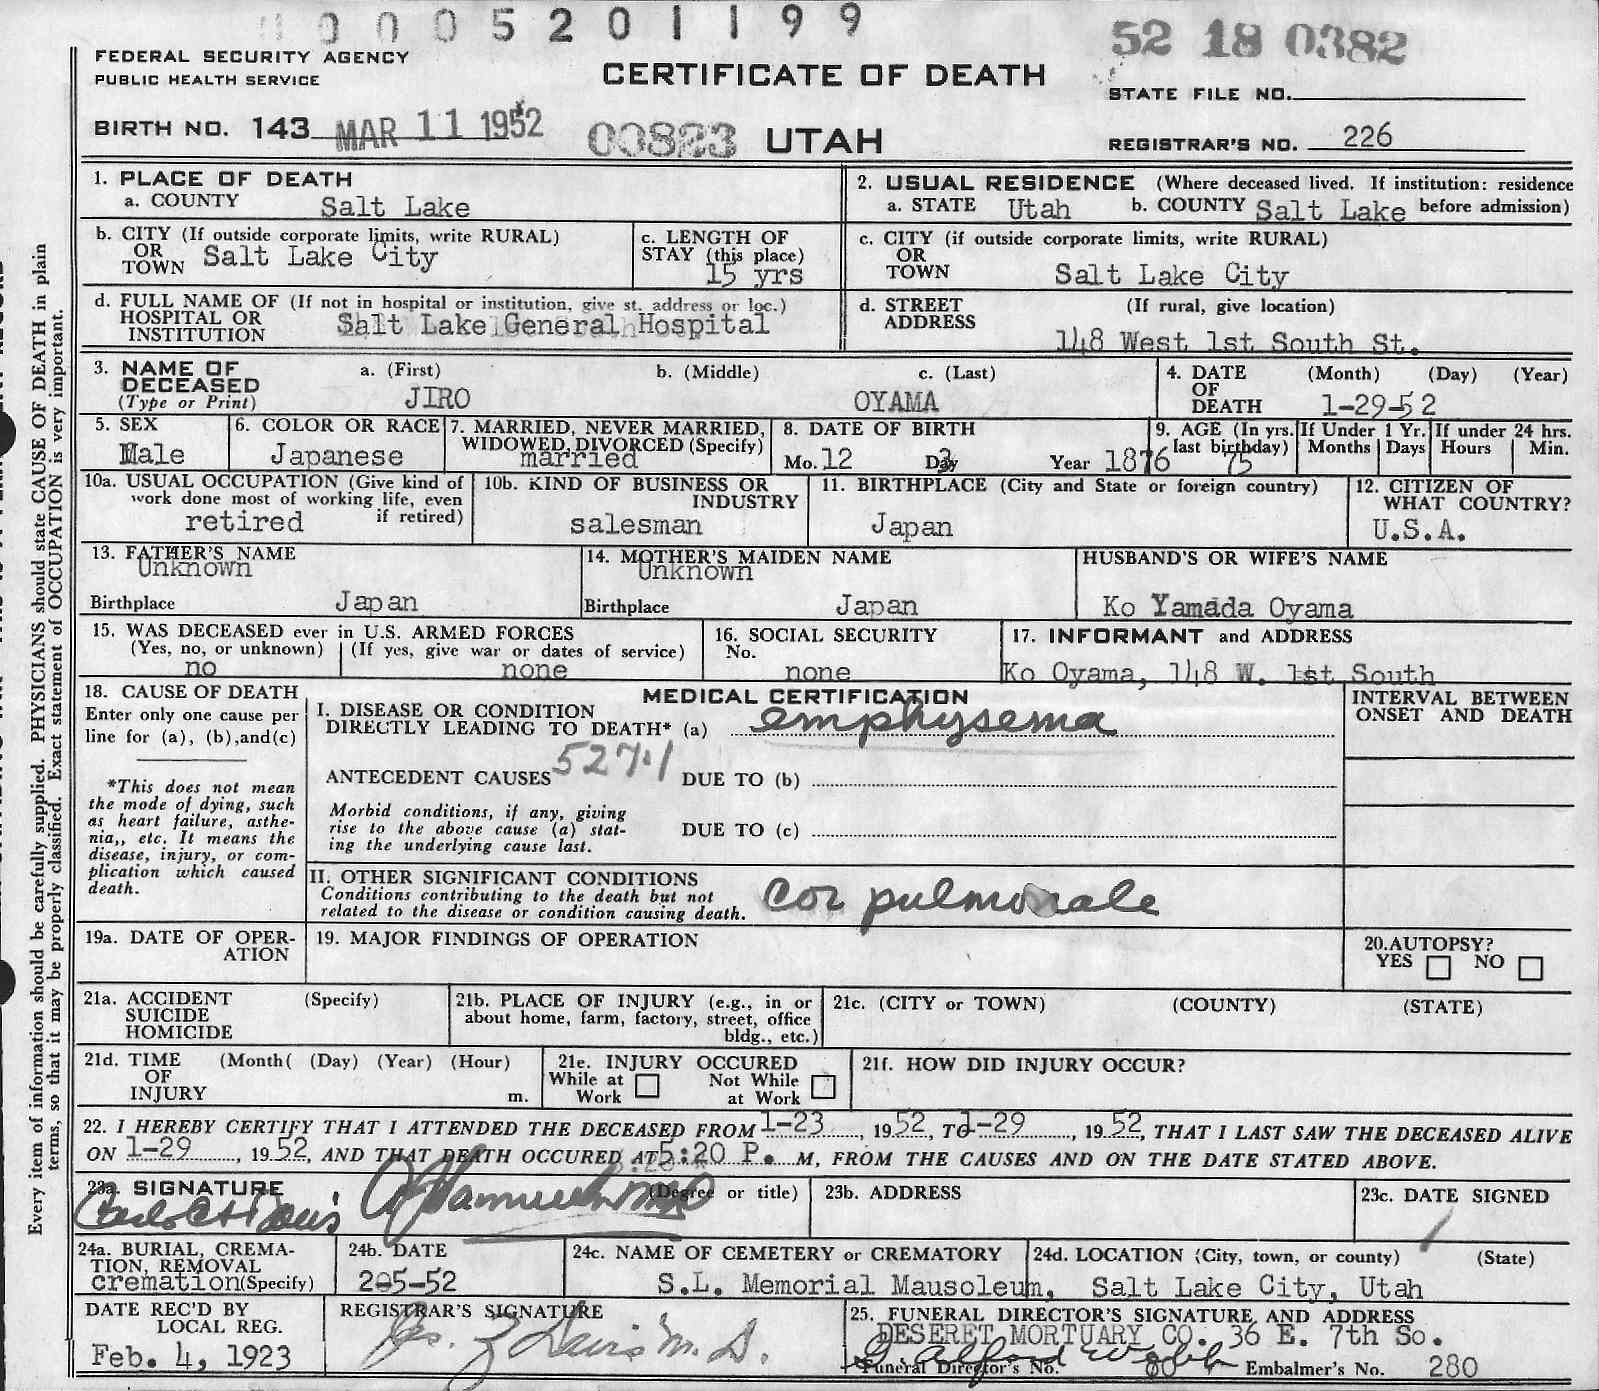 0005201199
52 18 0382
FEDERAL SECURITY AGENCY
PUBLIC HEALTH SERVICE
CERTIFICATE OF DEATH
STATE FILE NO.
BIRTH NO. 143 MAR 11 1952
00823 UTAH
REGISTRAR'S NO. 226
1. PLACE OF DEATH
a. COUNTY Salt Lake
2. USUAL RESIDENCE (Where deceased lived. If institution: residence
a. STATE Utah b. COUNTY Salt Lake before admission)
b. CITY (If outside corporate limits, write RURAL)
OR
TOWN Salt Lake City
c. LENGTH OF
STAY (this place)
15 yrs
c. CITY (if outside corporate limits, write RURAL)
OR
TOWN Salt Lake City
d. FULL NAME OF (If not in hospital or institution, give st. address or loc.)
HOSPITAL OR
INSTITUTION Salt Lake General Hospital
d. STREET (If rural, give location)
ADDRESS
148 West 1st South St.
3. NAME OF a. (First) b. (Middle) c. (Last)
DECEASED
(Type or Print) JIRO OYAMA
4. DATE (Month) (Day) (Year)
OF
DEATH 1-29-52
5. SEX
Male
6. COLOR OR RACE
Japanese
7. MARRIED, NEVER MARRIED,
WIDOWED, DIVORCED (Specify)
married
8. DATE OF BIRTH
Mo. 12 Day 3 Year 1876
9. AGE (In yrs.
last birthday) 75
If Under 1 Yr.
Months Days
If under 24 hrs.
Hours Min.
10a. USUAL OCCUPATION (Give kind of
work done most of working life, even
if retired)
retired
10b. KIND OF BUSINESS OR
INDUSTRY
salesman
11. BIRTHPLACE (City and State or foreign country)
Japan
12. CITIZEN OF
WHAT COUNTRY?
U.S.A.
13. FATHER'S NAME
Unknown
Birthplace Japan
14. MOTHER'S MAIDEN NAME
Unknown
Birthplace Japan
HUSBAND'S OR WIFE'S NAME
Ko Yamada Oyama
15. WAS DECEASED ever in U.S. ARMED FORCES
(Yes, no, or unknown) (If yes, give war or dates of service)
no none
16. SOCIAL SECURITY
No.
none
17. INFORMANT and ADDRESS
Ko Oyama, 148 W. 1st South
18. CAUSE OF DEATH
Enter only one cause per
line for (a), (b),and(c)
*This does not mean
the mode of dying, such
as heart failure, asthe-
nia,, etc. It means the
disease, injury, or com-
plication which caused
death.
MEDICAL CERTIFICATION
I. DISEASE OR CONDITION
DIRECTLY LEADING TO DEATH* (a) emphysema
527.1
ANTECEDENT CAUSES DUE TO (b)
Morbid conditions, if any, giving
rise to the above cause (a) stat-
ing the underlying cause last.
DUE TO (c)
II. OTHER SIGNIFICANT CONDITIONS
Conditions contributing to the death but not
related to the disease or condition causing death.
Cor pulmonale
INTERVAL BETWEEN
ONSET AND DEATH
19a. DATE OF OPER-
ATION
19. MAJOR FINDINGS OF OPERATION
20.AUTOPSY?
YES NO
21a. ACCIDENT (Specify)
SUICIDE
HOMICIDE
21b. PLACE OF INJURY (e.g., in or
about home, farm, factory, street, office
bldg., etc.)
21c. (CITY or TOWN) (COUNTY) (STATE)
21d. TIME (Month( (Day) (Year) (Hour)
OF
INJURY m.
21e. INJURY OCCURED
While at Work
Not While at Work
21f. HOW DID INJURY OCCUR?
22. I HEREBY CERTIFY THAT I ATTENDED THE DECEASED FROM 1-23, 1952, TO 1-29, 1952, THAT I LAST SAW THE DECEASED ALIVE
ON 1-29, 1952, AND THAT DEATH OCCURED AT 5:20 P. M, FROM THE CAUSES AND ON THE DATE STATED ABOVE.
23a. SIGNATURE (Degree or title)
23b. ADDRESS
23c. DATE SIGNED
24a. BURIAL, CREMA-
TION, REMOVAL
cremation (Specify)
24b. DATE
2-5-52
24c. NAME OF CEMETERY or CREMATORY
S.L. Memorial Mausoleum,
24d. LOCATION (City, town, or county) (State)
Salt Lake City, Utah
DATE REC'D BY
LOCAL REG.
Feb. 4, 1923
REGISTRAR'S SIGNATURE
25. FUNERAL DIRECTOR'S SIGNATURE AND ADDRESS
DESERET MORTUARY CO. 36 E. 7th So.
Funeral Director's No. Embalmer's No. 280
Every item of information should be carefully supplied. PHYSICIANS should state CAUSE OF DEATH in plain
terms, so that it may be properly classified. Exact statement of OCCUPATION is very important.